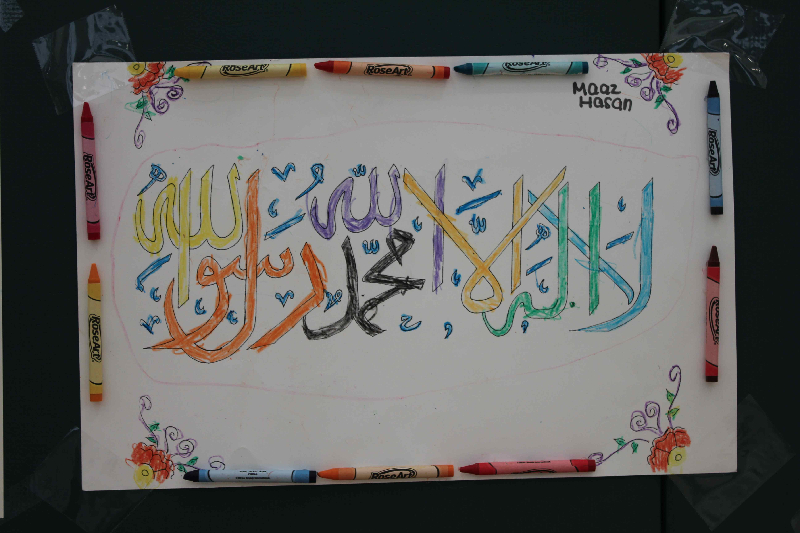 RoseArt
RoseArt
RoseArt
Maaz
Hasan
لا اله الا الله محمد رسول الله
RoseArt
RoseArt
RoseArt
RoseArt
RoseArt